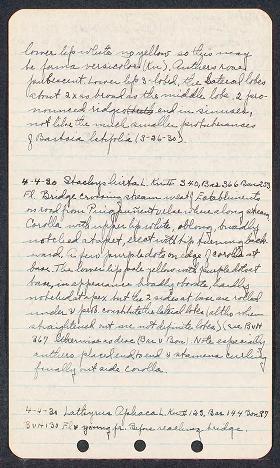 lower lip white no yellow so this may
be forma versicolor (Kn). Anthers
pubescent. Lower lip 3-lobed, the lateral lobes
about 2x as broad as the middle lobe. 2 pro-
nounced ridges end in sinuses,
not like the much smaller protuberances
of Bartsia latifolia (3-26-30).
4-4-30 Stachys hirta L. Kn# 340, Bar 366 Bon 253
Fl. Bridge crossing stream west of Establiments
on road from Puigpunyent where along stream.
Corolla with upper lip white, oblong, broadly
notched at apex, erect with tip turning back-
ward. A few purple dots on edge of corolla at
base. The lower lip pale yellow with purple dots at
base, in appearance broadly obovate, hardly
notched at apex but the 2 sides at base are rolled
under & perh. constitute the lateral lobes (altho when
straightened out are not definite lobes) (see B&H
367 Otherwise no disc (Bar & Bon). Note especially
anthers placed end to end & stamens curling
finally outside corolla.
4-4-30 Lathyrus Aphaca L. Kn# 123, Bar 144 Bon 87
B&H 130 Fl & young fr. Before reaching bridge.